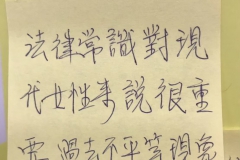 法律常識對現
代女性來說很重
要 過去不平等現象